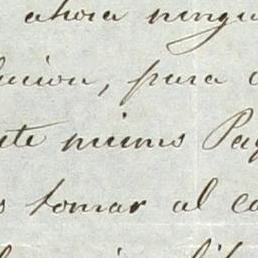 ahora ningu
lucion, para
te mismo Pa
s tomar al co